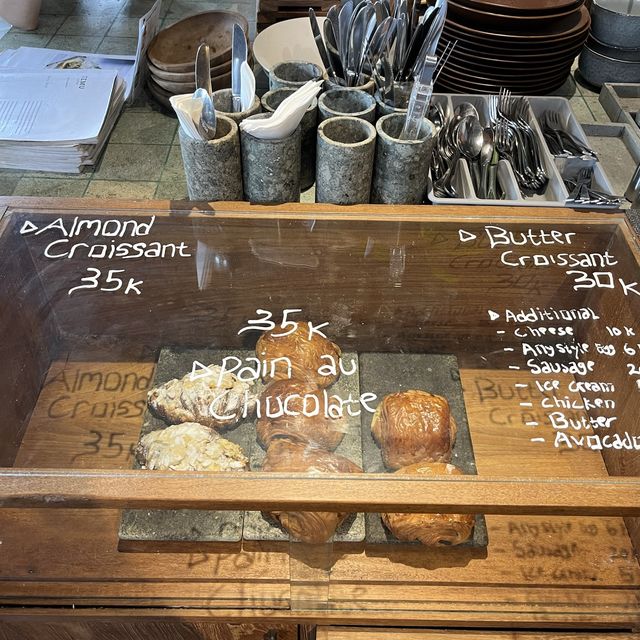 ▷ Almond
Croissant
35K
▷ Butter
Croissant
30K
35K
▷ Pain au
Chocolate
▷ Additional
- Cheese 10K
- Any style Egg 6
- Sausage
- Ice Cream
- Chicken
- Butter
- Avocado